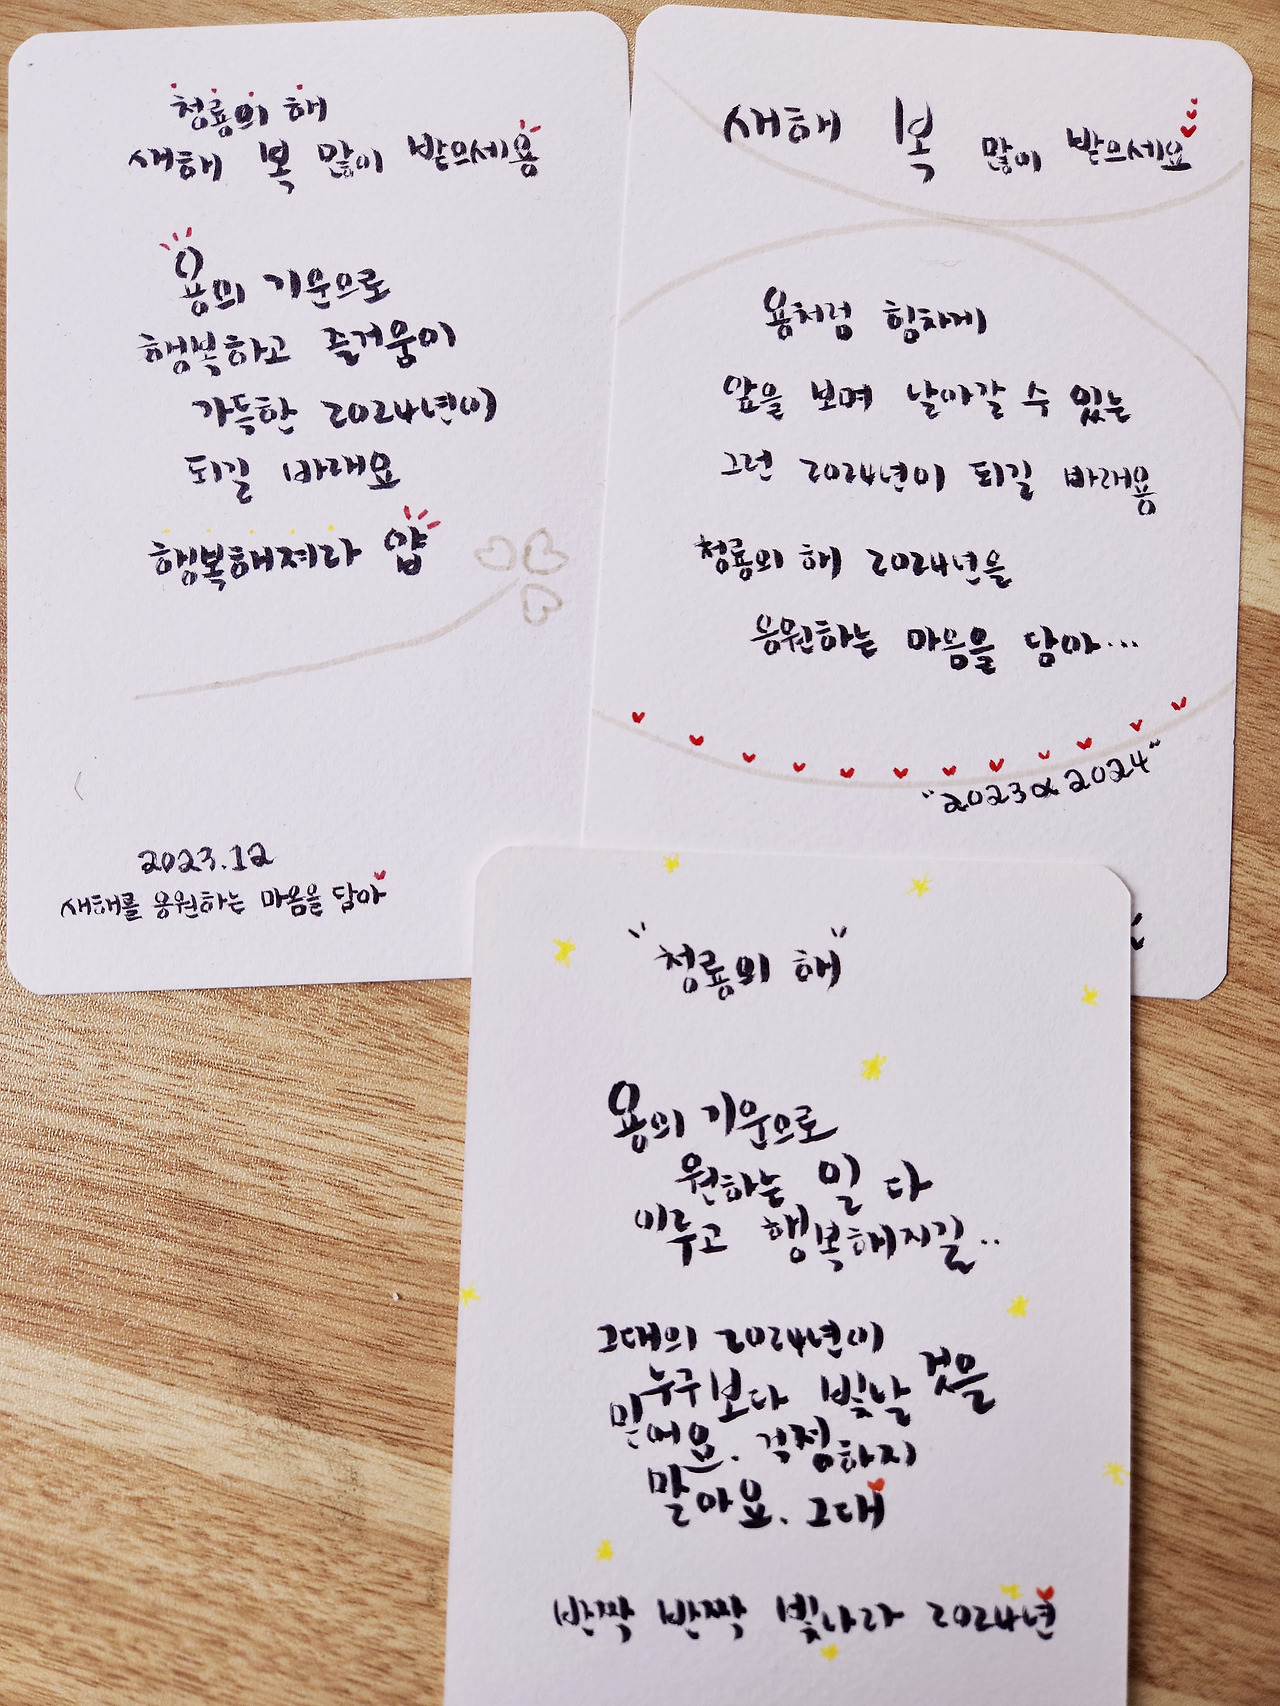 청룡의 해
새해 복 많이 받으세용
용의 기운으로
행복하고 즐거움이
가득한 2024년이
되길 바래요
행복해져라 얍
2023.12
새해를 응원하는 마음을 담아
새해 복 많이 받으세요
용처럼 힘차게
앞을 보며 날아갈 수 있는
그런 2024년이 되길 바래용
청룡의 해 2024년을
응원하는 마음을 담아...
"2023 & 2024"
"청룡의 해"
용의 기운으로
원하는 일 다
이루고 행복해지길..
그대의 2024년이
누구보다 빛날 것을
믿어요. 걱정하지
말아요. 그대
반짝 반짝 빛나라 2024년